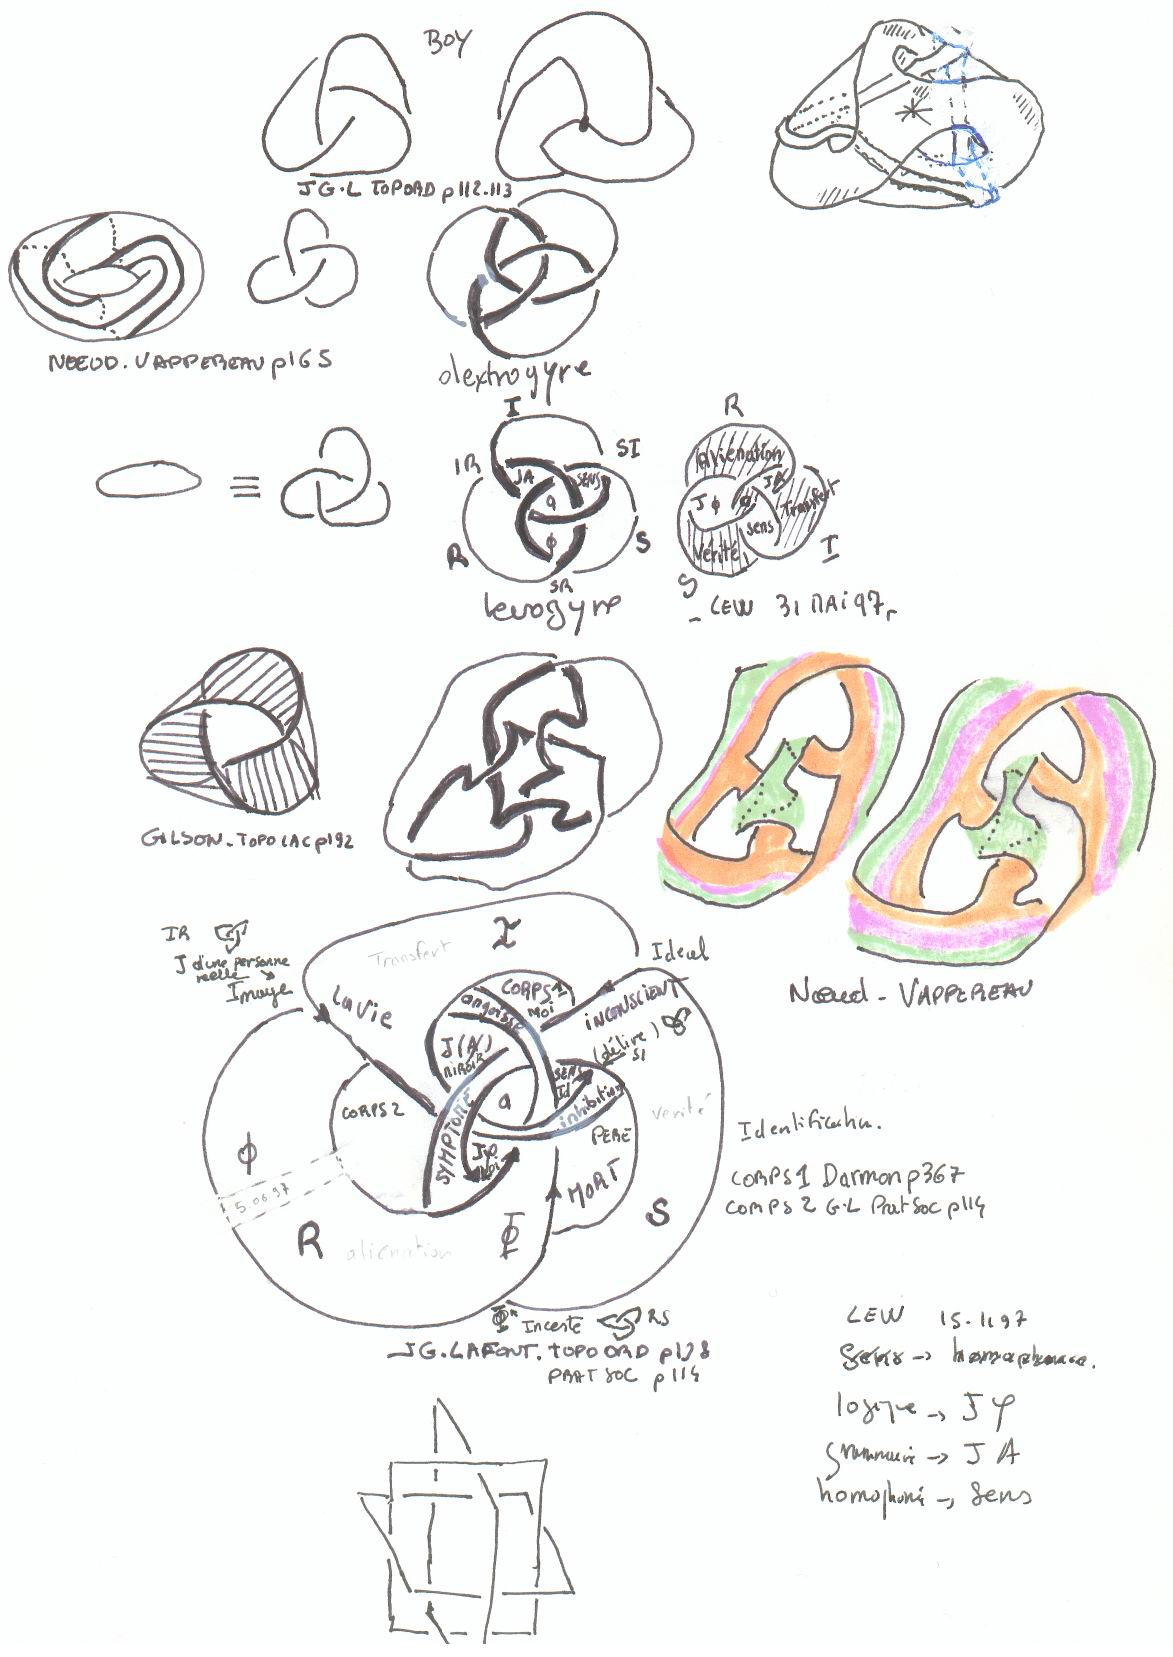 BOY
JG.L TOPORD p112.113
NOEUD. VAPPEREAU p165
dextrogyre
I
SI
IR
JA
SENS
a
ϕ
R
S
SR
levogyre
R
aliénation
JA
Jϕ
a
Transfert
sens
Vérité
I
S
- LEW 31 MAI 97
GILSON. TOPOLAC p192
Nœud - VAPPEREAU
IR
J d'une personne
réelle
Image
Transfert
I
Ideal
La vie
CORPS 1
Moi
angoisse
INCONSCIENT
(délire)
SI
J(A)
MIROIR
SENS
Id
CORPS 2
SYMPTOME
a
inhibition
Jφ
PERE
vérité
MORT
ϕ
5.06.97
R
aliénation
Φ
S
Identification.
CORPS 1 Darmon p367
CORPS 2 G.L Prat Soc p114
Φ Inceste RS
JG.LAFONT. TOPO ORD p128
PRAT SOC p114
LEW 15.11.97
sens → homophonie.
logique → J φ
grammaire → J A
homophonie → Sens